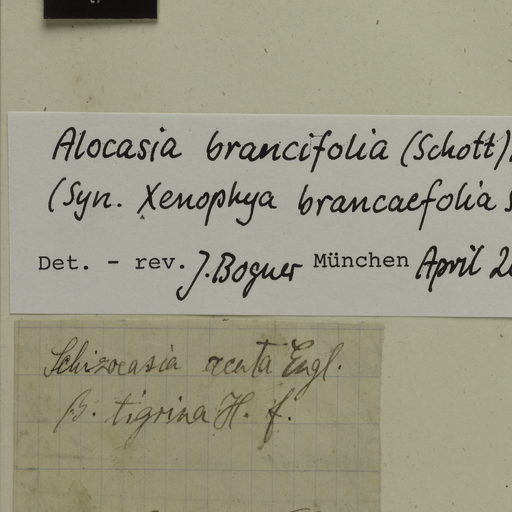 Alocasia brancifolia (Schott)
(Syn. Xenophya brancaefolia S
Det. - rev. J. Bogner München April 2
Schizocasia acuta Engl.
β. tigrina H. f.